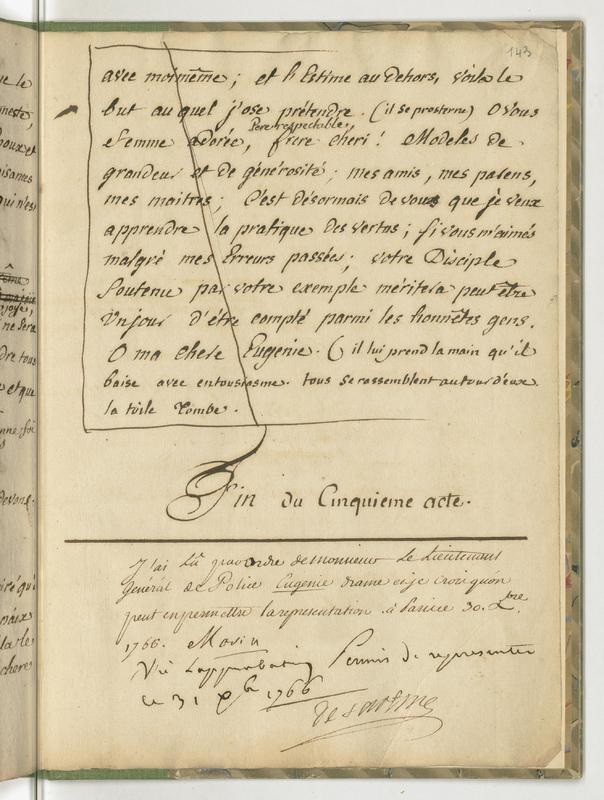 143
avec moimême ; et l'Estime au dehors, voila le
but au quel j'ose prétendre. (il se prosterne) O vous
Femme adorée, frere cheri ! Modeles de
Pere respectable,
grandeur et de générosité ; mes amis, mes parens,
mes maitres ; C'est désormais de vous que je veux
apprendre la pratique des vertus ; si vous m'aimés
malgré mes Erreurs passées ; votre Disciple
soutenu par votre exemple méritera peut être
un jour d'être compté parmi les honnêtes gens.
O ma chere Eugenie. ( il lui prend la main qu'il
baise avec entousiasme. tous se rassemblent autour d'eux.
la toile tombe.
Fin du Cinquieme acte.
J'ai Lû par ordre de Monsieur Le Lieutenant
général de Police Eugenie drame et je crois qu'on
peut en permettre la representation. à Paris ce 30. Xbre.
1766. Marin
Vu l'approbation Permis de representer
ce 31 Xbre 1766
de sartine